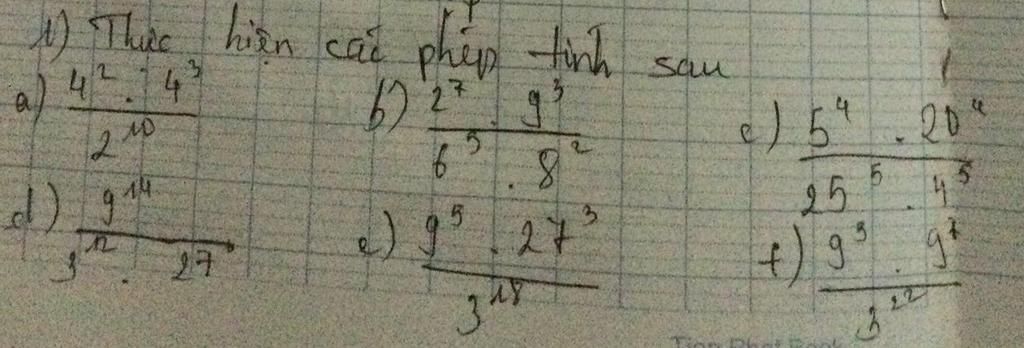 1) Thực hiện các phép tính sau
a) 4² . 4³ / 2¹⁰ b) 2⁷ . 9³ / 6⁵ . 8² c) 5⁴ . 20⁴ / 25⁵ . 4⁵
d) 9¹⁴ / 3¹² . 27 e) 9⁵ . 27³ / 3¹⁸ f) 9³ . 9⁷ / 3²²